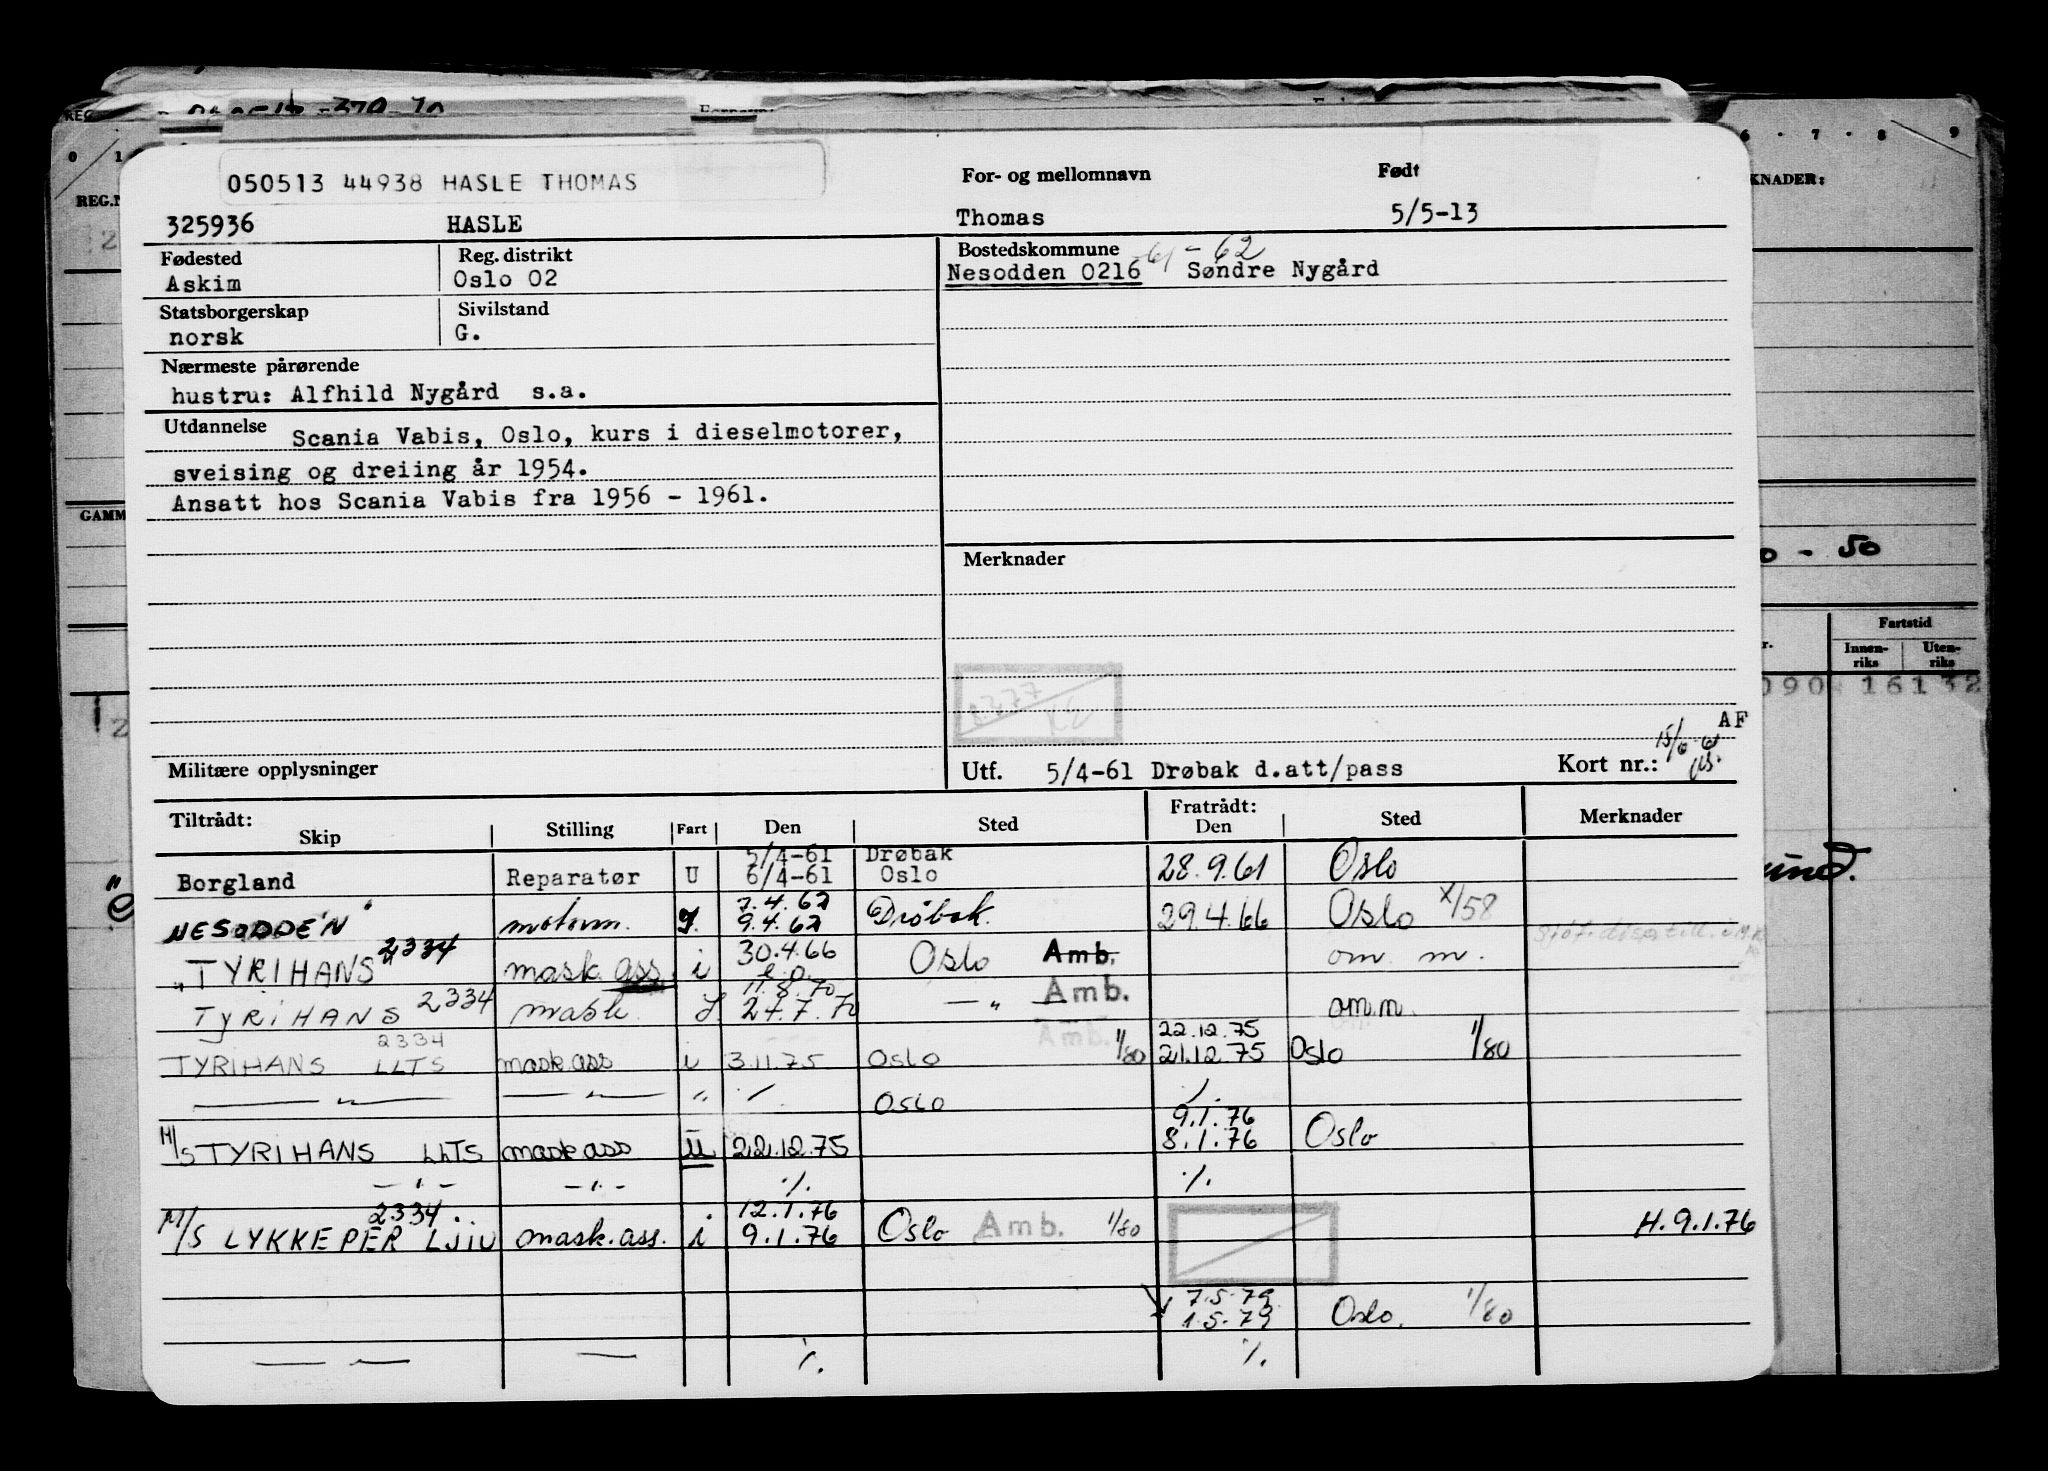 050513 44938 HASLE THOMAS
For- og mellomnavn
Født
325936 HASLE Thomas 5/5-13
Fødested
Askim
Reg. distrikt
Oslo 02
Bostedskommune 61-62
Nesodden 0216 Søndre Nygård
Statsborgerskap
norsk
Sivilstand
G.
Nærmeste pårørende
hustru: Alfhild Nygård s.a.
Utdannelse Scania Vabis, Oslo, kurs i dieselmotorer,
sveising og dreiing år 1954.
Ansatt hos Scania Vabis fra 1956 - 1961.
Merknader
AF
Militære opplysninger
Utf. 5/4-61 Drøbak d.att/pass
Kort nr.:
Tiltrådt:
Skip Stilling Fart Den Sted
Fratrådt:
Den Sted Merknader
5/4-61 Drøbak
Borgland Reparatør U 6/4-61 Oslo 28.9.61 Oslo
7.4.62
"NESODDEN" motorm. I. 9.4.62 Drøbak. 29.4.66 Oslo X/58
"TYRIHANS" 2334 mask.ass. i 30.4.66 Oslo Amb. om. m.
e.o.
11.8.70
TYRIHANS 2334 mask. I 27.7.70 — " — Amb. om.m.
Amb.
2334
22.12.75
TYRIHANS LLTS mask.ass i 3.11.75 Oslo 1/80 21.12.75 Oslo 1/80
— " — — " — " ·/. Oslo ·/.
9.1.76
M/S TYRIHANS LLTS mask ass U 22.12.75 8.1.76 Oslo
— " — — " — ·/. ·/.
2334 12.1.76
M/S LYKKEPER LJIU mask.ass. i 9.1.76 Oslo Amb. 1/80 H.9.1.76
7.5.79
1.5.79 Oslo. 1/80
— — — ·/. ·/.
REG.
0 1
6 · 7 · 8 9
REG.N
KNADER:
GAMM
0 - 50
Fartstid
Innen-
riks
Uten-
riks
090 16132